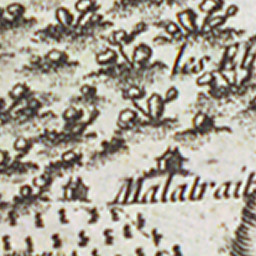 les El
Malabrait